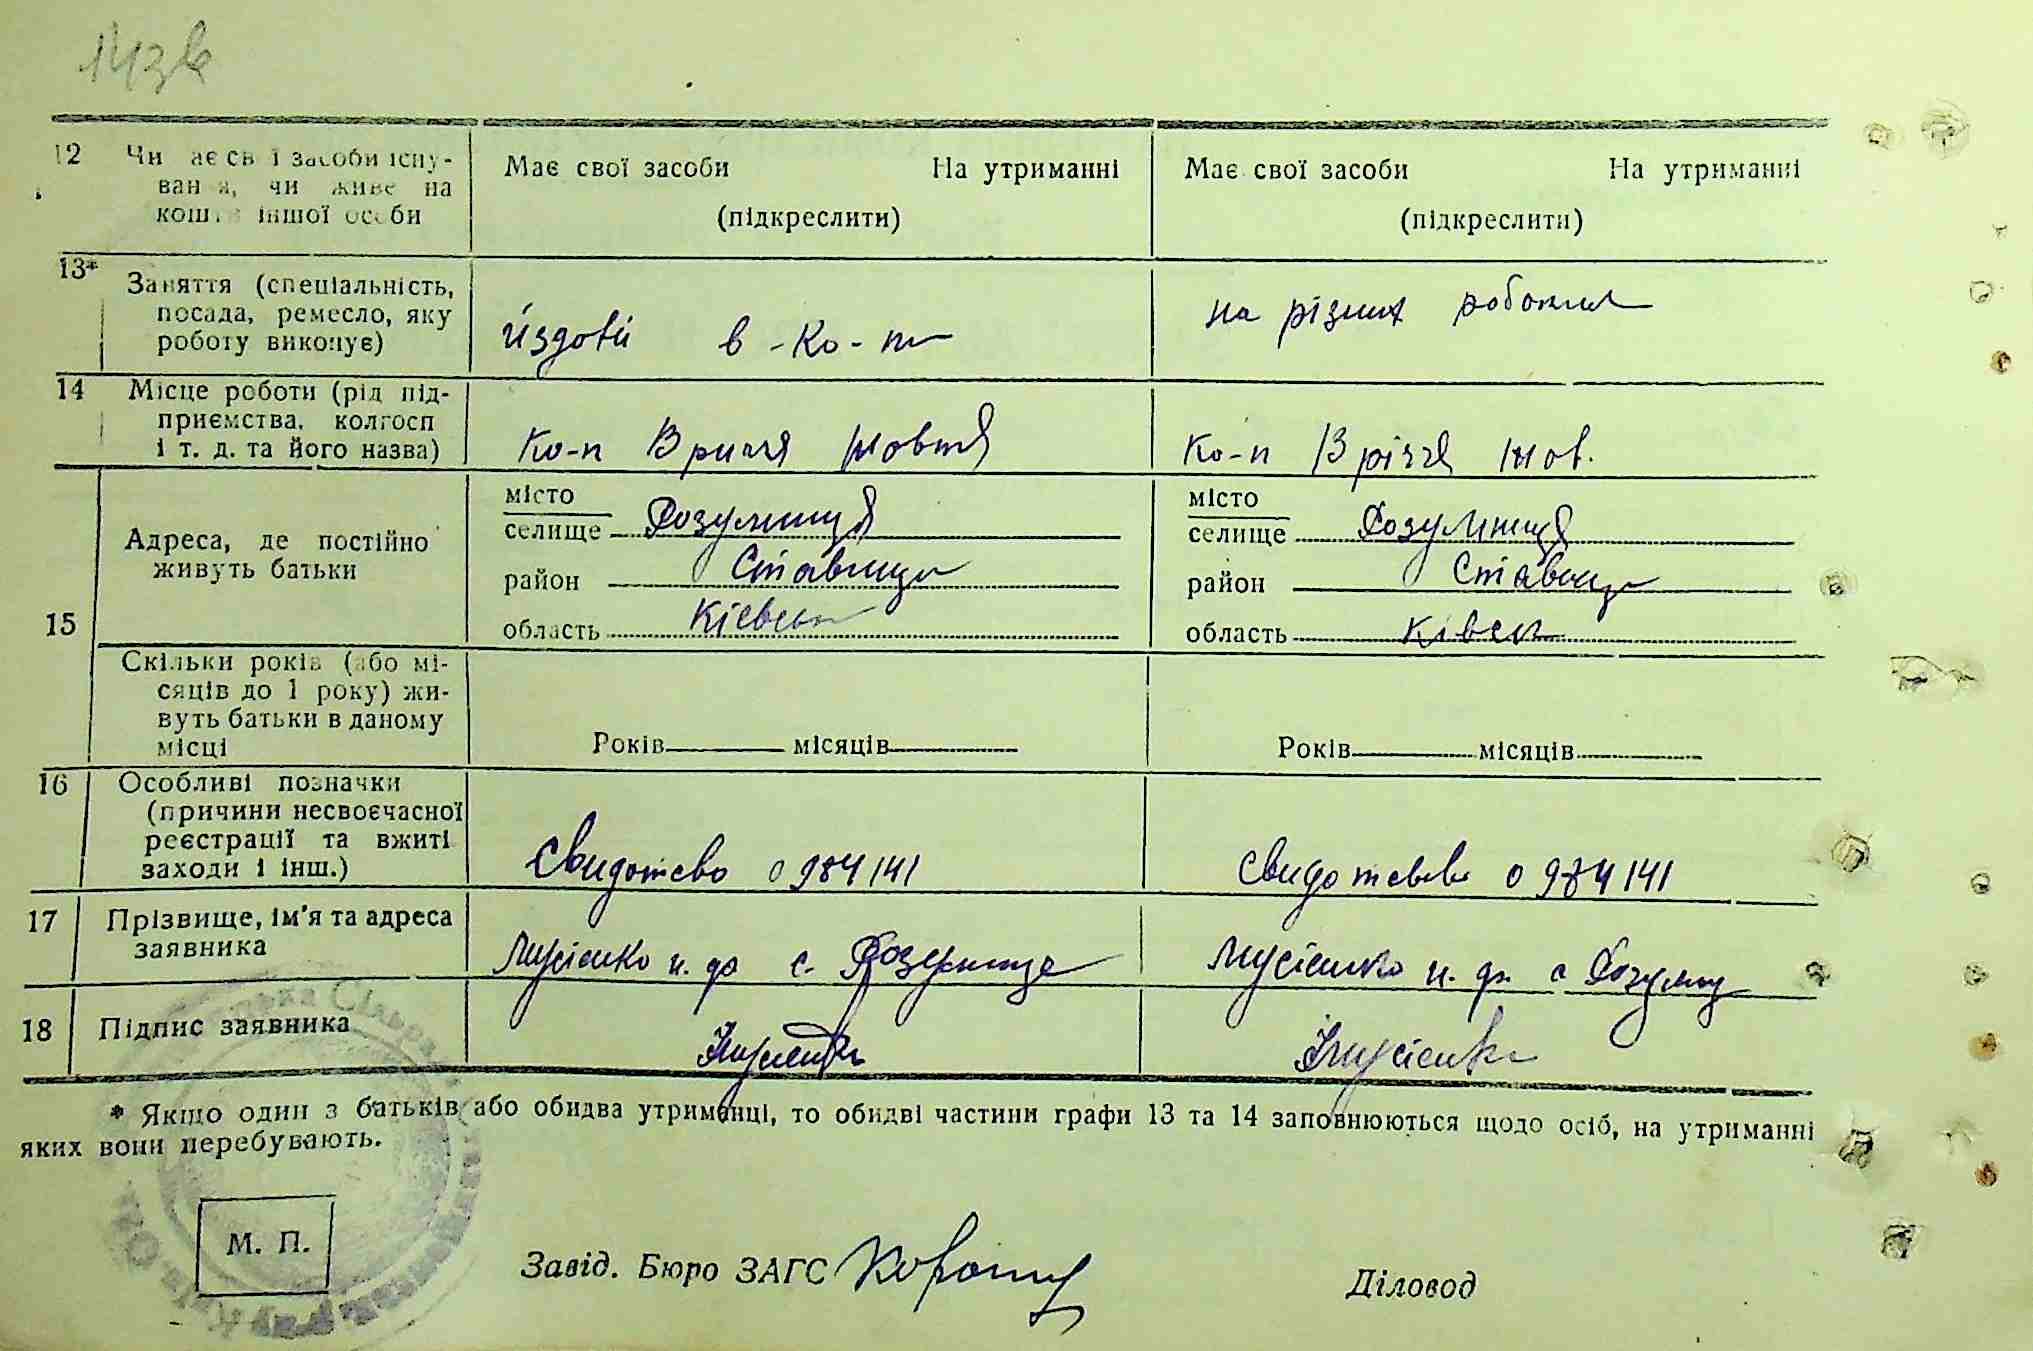 143в
12 Чи має свої засоби існу-
вання, чи живе на
кошти іншої особи
Має свої засоби На утриманні
(підкреслити)
Має свої засоби На утриманні
(підкреслити)
13* Заняття (спеціальність,
посада, ремесло, яку
роботу виконує)
їздовй в-ко-пі
на різних роботах
14 Місце роботи (рід під-
приємства, колгосп
і т. д. та його назва)
ко-п В річчя жовтня
ко-п В річчя жов.
15 Адреса, де постійно
живуть батьки
місто
селище Розумниця
район Ставище
область Кієвськ
місто
селище Розумниця
район Ставище
область Ківськ
Скільки років (або мі-
сяців до 1 року) жи-
вуть батьки в даному
місці
Років місяців
Років місяців
16 Особливі позначки
(причини несвоєчасної
реєстрації та вжиті
заходи і інш.)
Свидотєво 0984141
Свидотєво 0984141
17 Прізвище, ім'я та адреса
заявника
Мусієнко с.
Мусієнко с
18 Підпис заявника
* Якщо один з батьків або обидва утриманці, то обидві частини графи 13 та 14 заповнюються щодо осіб, на утриманні
яких вони перебувають.
М. П.
Завід. Бюро ЗАГС
Діловод